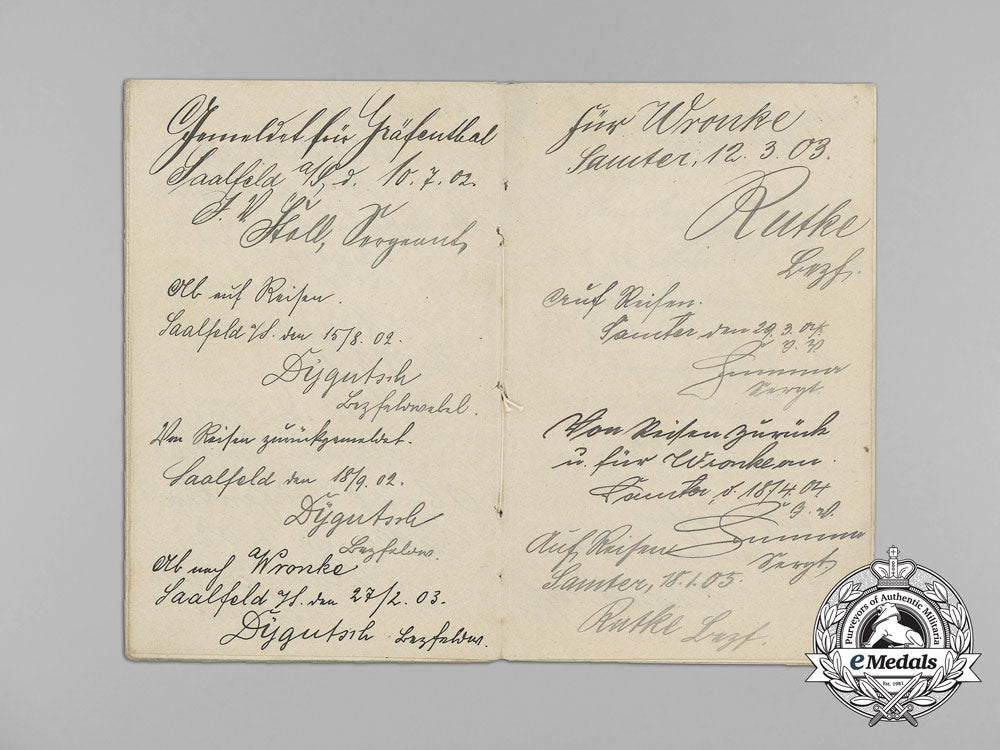 Gemeldet für Gräfenthal
Saalfeld a/S, d. 10.7.02.
J. V.
Stoll, Sergeant
Ab auf Reisen.
Saalfeld a/S. den 15/8. 02.
Dÿgutsch
Bezfeldwebel.
Von Reisen zurückgemeldet.
Saalfeld den 18/9. 02.
Dÿgutsch
Bezfeldw.
Ab nach Wronke
Saalfeld a/S. den 27/2. 03.
Dÿgutsch Bezfeldw.
für Wronke
Samter, 12.3.03.
Rutke
Bezf.
Auf Reisen.
Samter den 29.3.04.
J. V.
Summa
Sergt.
Von Reisen zurück
u. für Wronke an.
Samter, d. 18/4.04
J. V.
Summa
Sergt.
Auf Reisen
Samter, 18.1.05.
Rutke Bezf.
Purveyors of Authentic Militaria
eMedals
Est. 1981